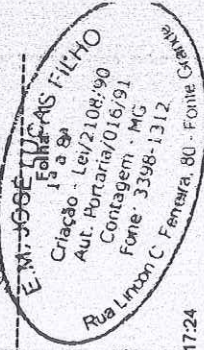 E.M. JOSÉ LUCAS FILHO
Folha:
1ª a 8ª
Criação - Lei/2108/90
Aut. Portaria/016/91
Contagem - MG
Fone: 3398-1312
Rua Lincoln C. Ferreira, 80 - Fonte Grande
17:24